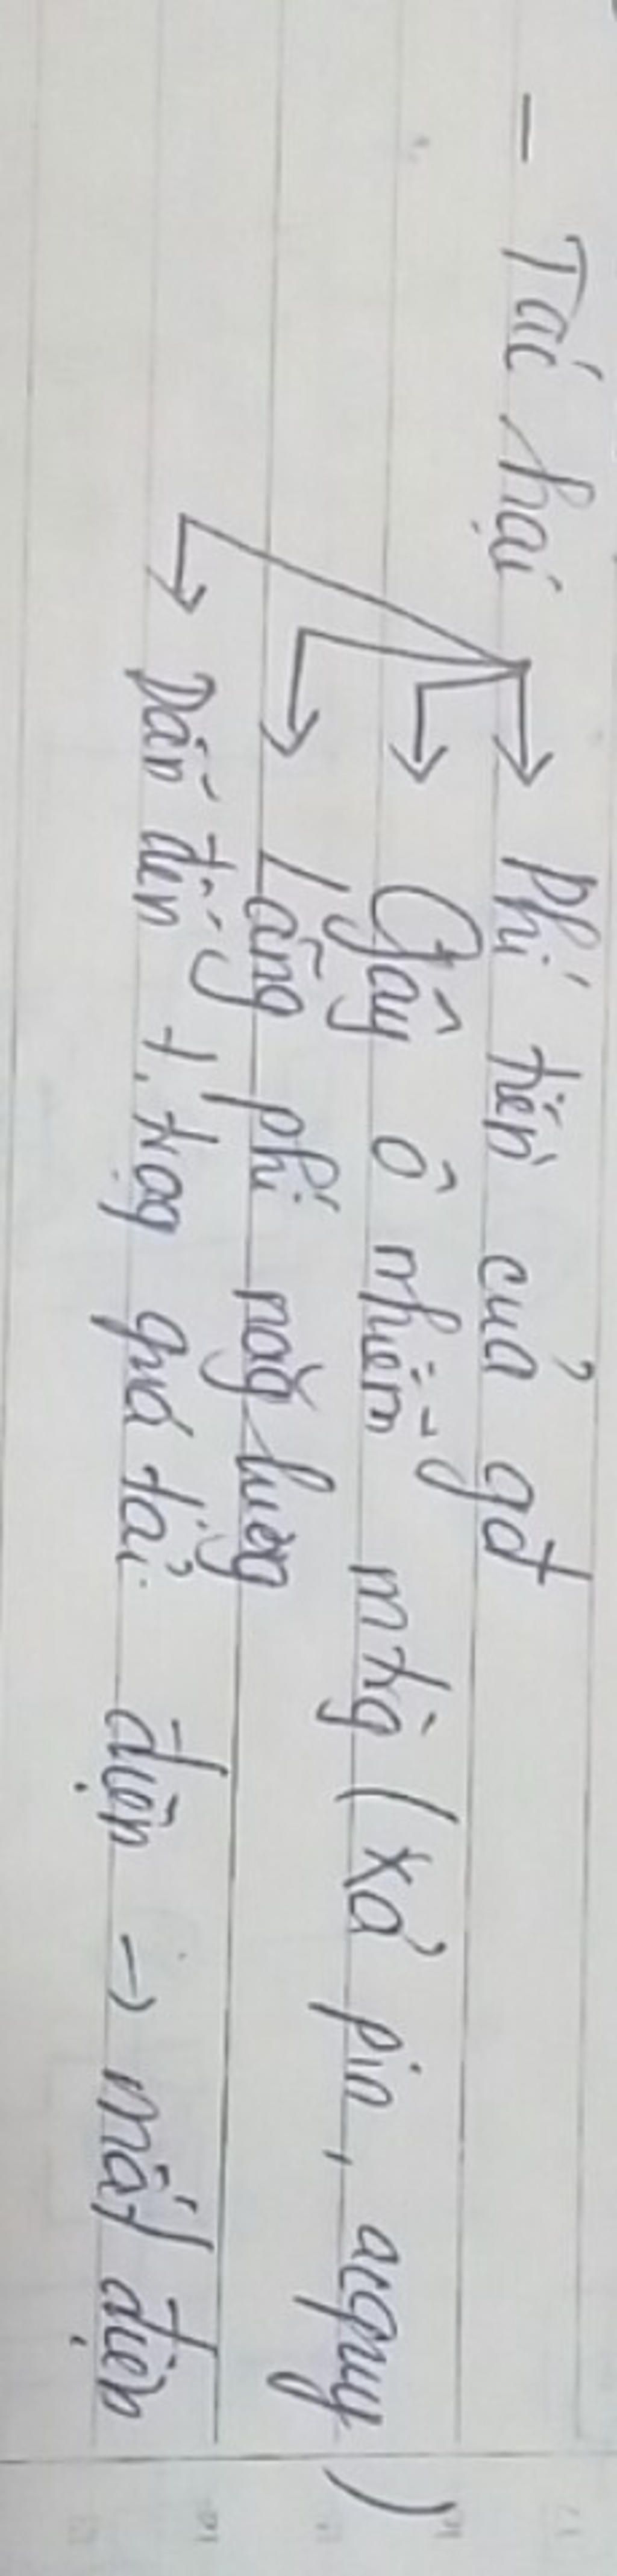 - Tác hại → Phí tiền của gđ
→ Gây ô nhiễm mtrg̀ (xả pin, acquy)
→ Lãng phí năg lượg
→ Dẫn đến t.trạg quá tải điện → mất điện